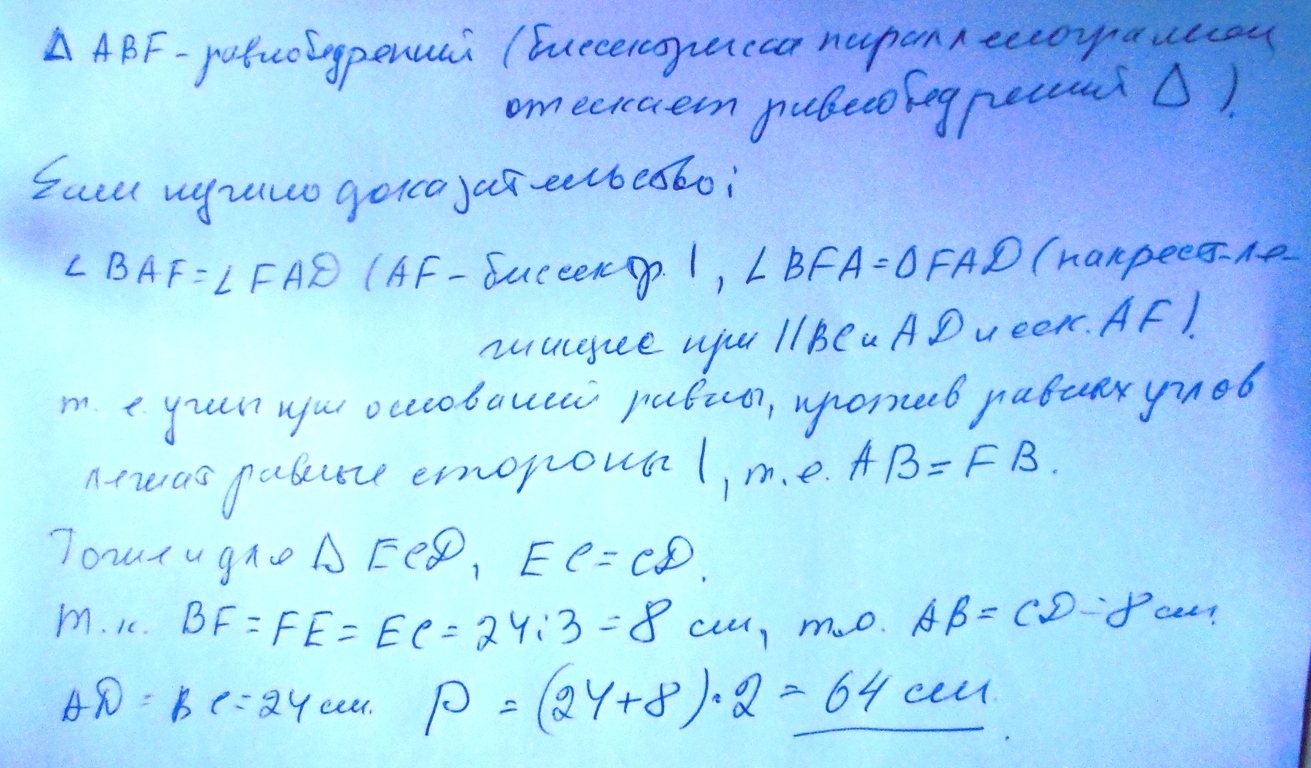 Δ ABF - равнобедренный (биссектрисса параллелограмма
отсекает равнобедренный Δ).
Если нужно доказательство:
∠ BAF = ∠ FAD (AF - биссектр.), ∠ BFA = Δ FAD (накрест-ле-
жащие при || BC и AD и сек. AF).
т. е. углы при основании равны, против равных углов
лежат равные стороны), т. е. AB = FB.
Тоже и для Δ ECD, EC = CD.
Т.к. BF = FE = EC = 24 : 3 = 8 см, то. AB = CD = 8 см.
AD = BC = 24 см. P = (24 + 8) · 2 = 64 см.